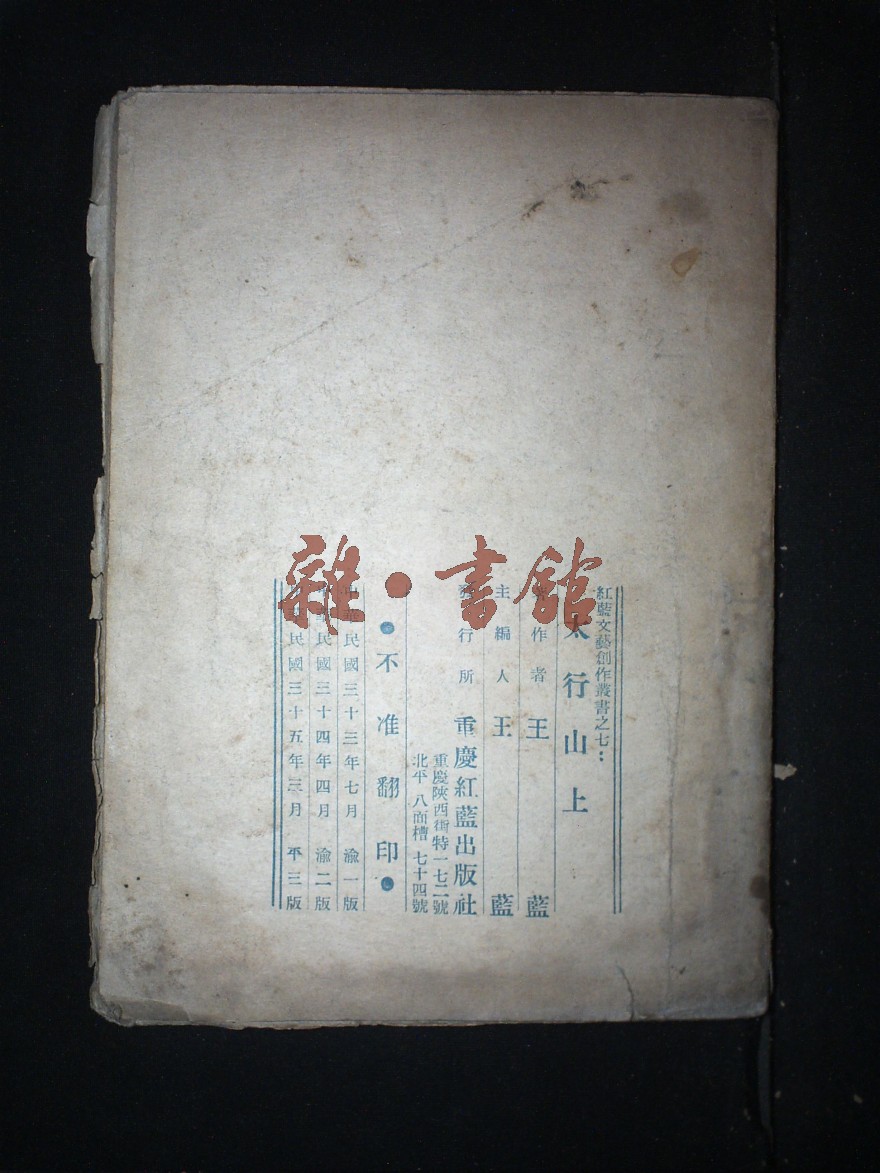 紅藍文藝創作叢書之七：
太行山上
著作者 王藍
主編人 王藍
發行所 重慶紅藍出版社
重慶陝西街特一七二號
北平八面槽七十四號
●不准翻印●
中華民國三十三年七月 渝一版
中華民國三十四年四月 渝二版
中華民國三十五年三月 平三版
雜·書館